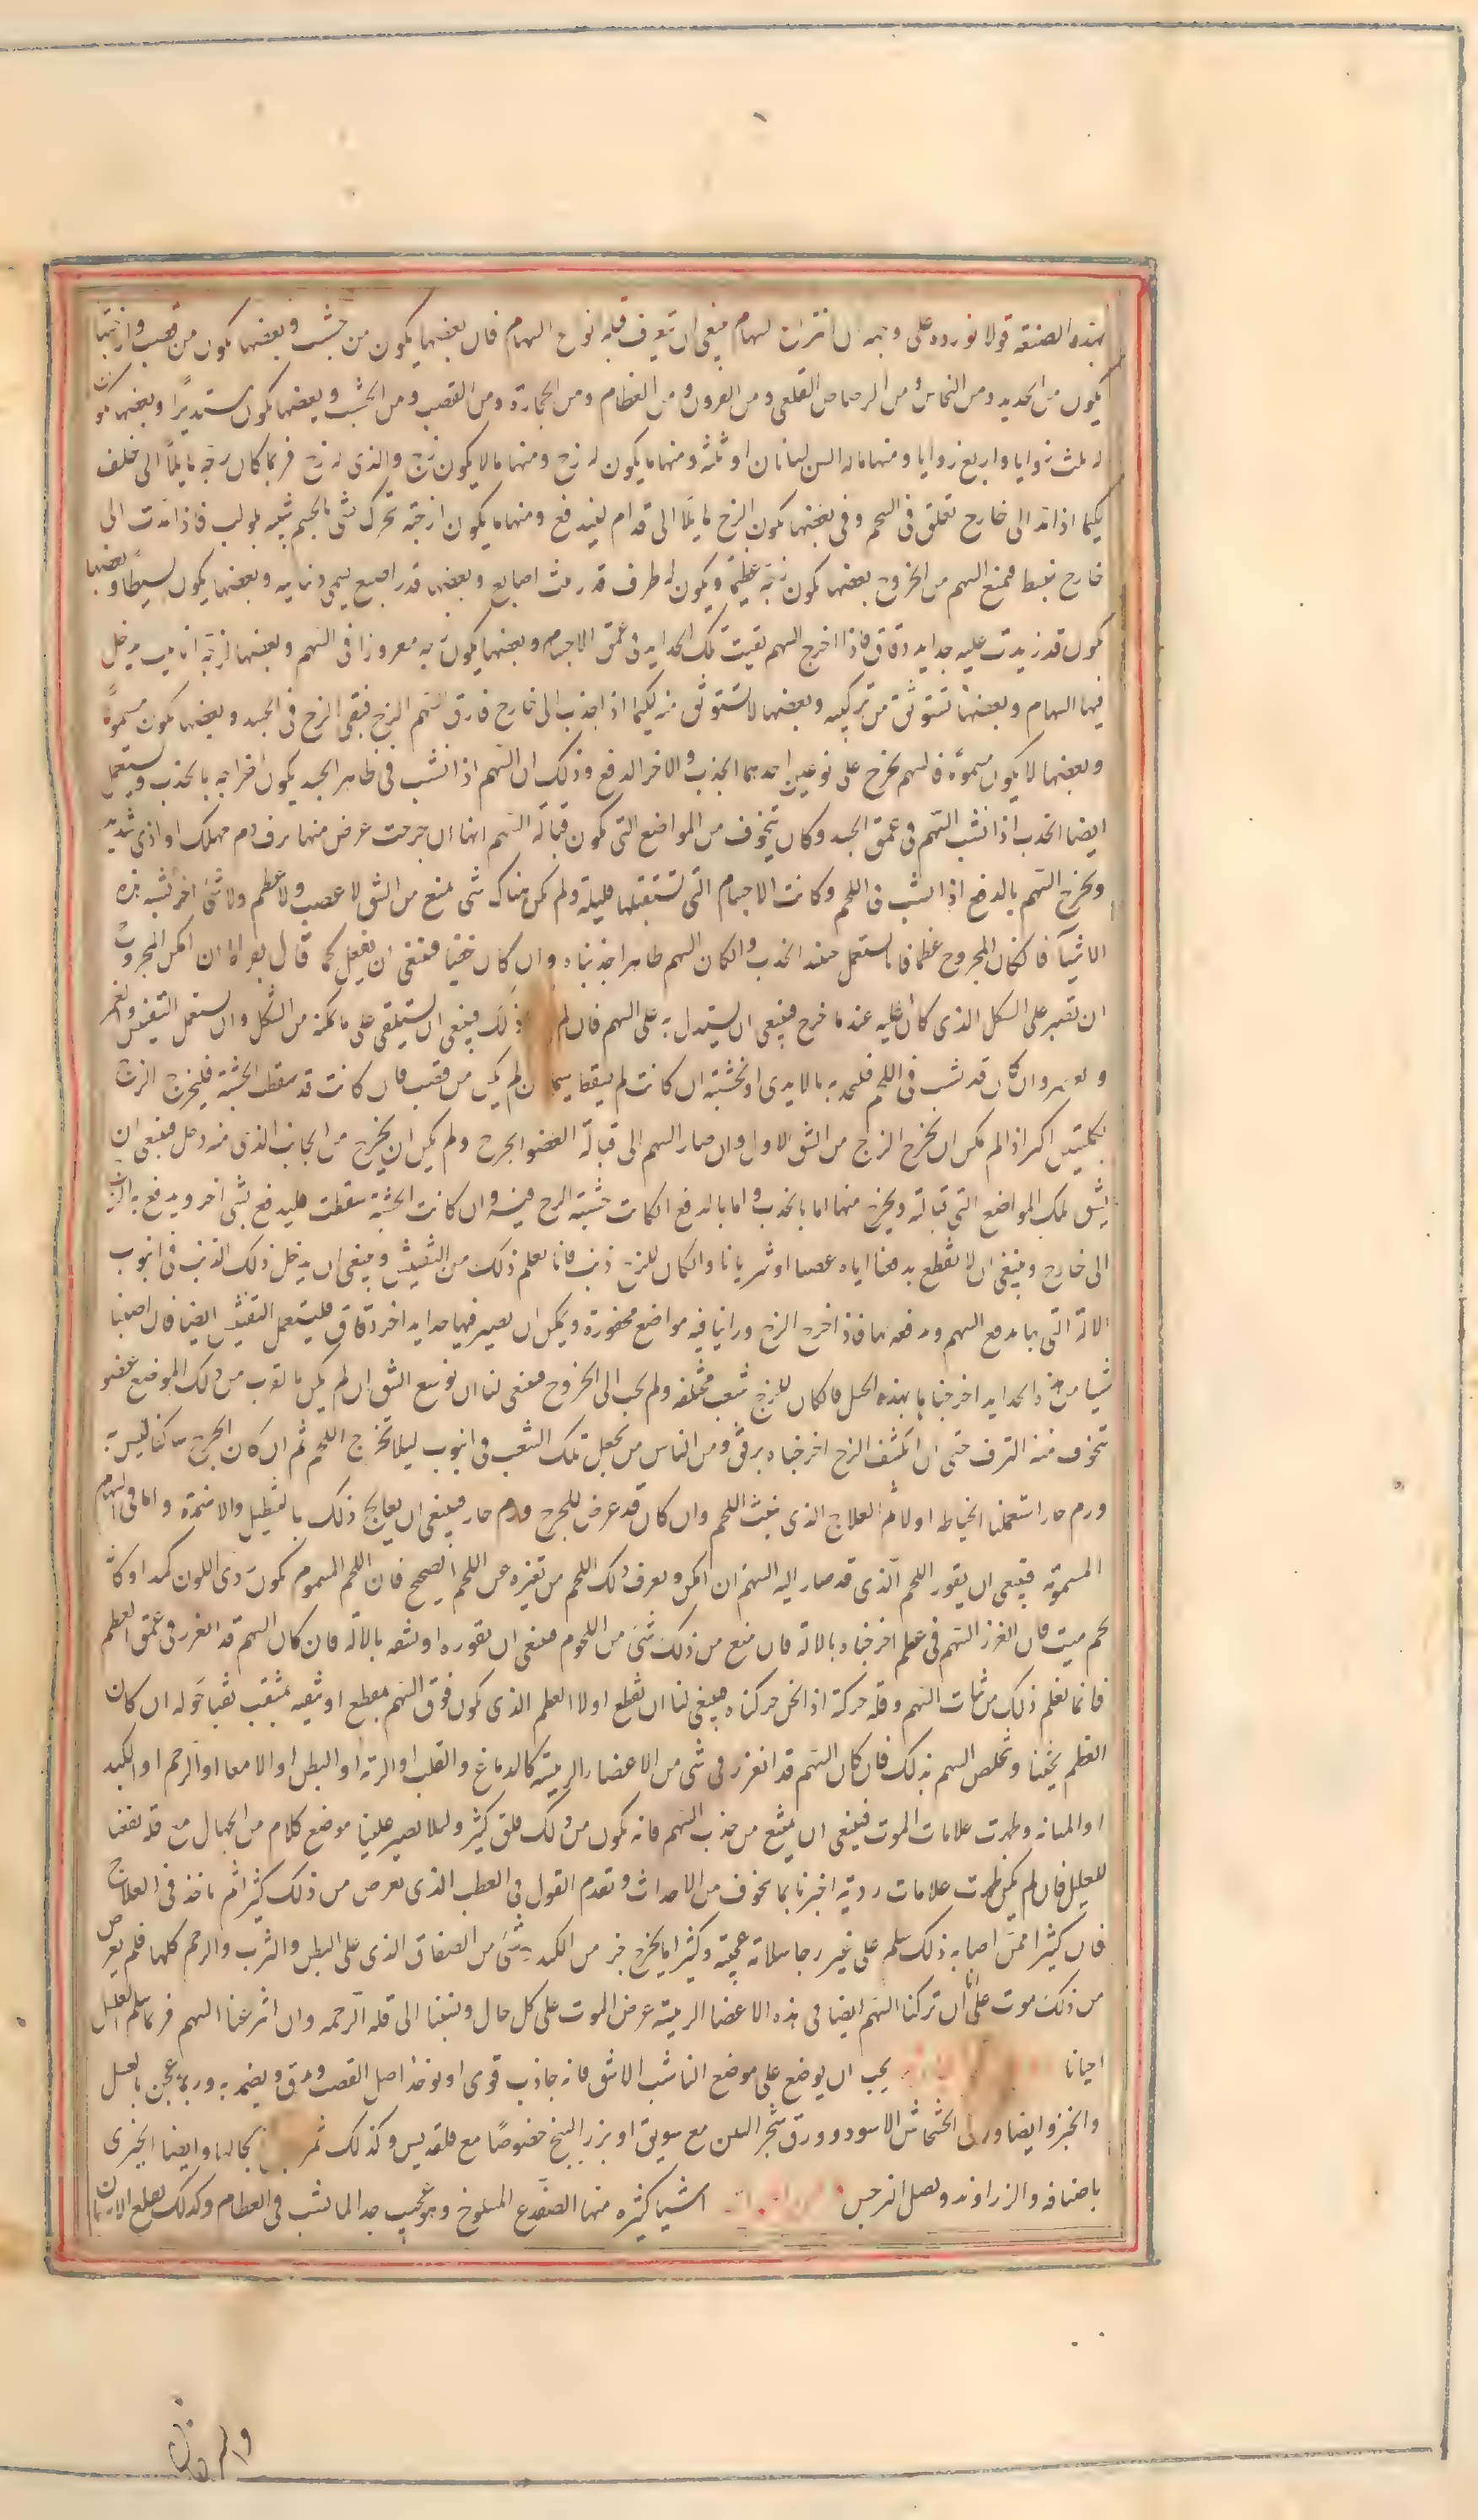 بهذه الصنعة قولا نورده على وجهه ان انتزاع السهام ينبغى ان تعرف قبله انواع السهام فان بعضها يكون من خشب وبعضها يكون من قصب وازجتها
يكون من الحديد ومن النحاس ومن الرصاص القلعى ومن القرون ومن العظام ومن الحجارة ومن القصب ومن الخشب وبعضها يكون مستديرا وبعضها يكون
له ثلث زوايا واربع زوايا ومنها ما له السن لسانان او ثلثة ومنها ما يكون له زج ومنها ما لا يكون له زج والذى له زج فربما كان زجه مايلا الى خلف
لكيما اذا مد الى خارج تعلق فى اللحم وفى بعضها يكون الزج مايلا الى قدام ليندفع ومنها ما يكون ازجته تحرك بشى مالجيم شبيه بلولب فاذا مدت الى
خارج تنبسط فيمنع السهم من الخروج بعضها يكون زجه عظيما ويكون له طرف قدر ثلث اصابع وبعضها قدر اصبع يسمى ذنابيه وبعضها يكون بسيطا وبعضها
يكون قد زيدت عليه حدايد دقاق فاذا اخرج السهم بقيت تلك الحدايد فى عمق الاجسام وبعضها يكون زجه مغروزا فى السهم وبعضها لزجه انابيب يدخل
فيها السهام وبعضها تستوثق من تركيبه وبعضها لا تستوثق منه لكيما اذا جذب الى خارج فارق السهم الزج فبقى الزج فى الجسد وبعضها يكون مسمومة
وبعضها لا يكون مسمومة فالسهم يخرج على نوعين احدهما الجذب والاخر الدفع وذلك ان السهم اذا نشب فى ظاهر الجسد يكون اخراجه بالجذب ويستعمل
ايضا الجذب اذا نشب السهم فى عمق الجسد وكان يتخوف من المواضع التى تكون قبالة السهم انها ان جرحت عرض منها نزف دم مهلك او اذى شديد
ويخرج السهم بالدفع اذا نشب فى اللحم وكانت الاجسام التى تستقبلها قليلة ولم يكن هناك شى يمنع من الشق لا عصب ولا عظم ولا شئ اخر يشبه هذه
الاشيآ فان كان المجروح عظما فانا نستعمل عند الجذب وان كان السهم ظاهرا جذبناه وان كان خفيا فينبغى ان يفعل كما قال بقراط ان امكن المجروح
ان تصير على الشكل الذى كان عليه عند ما جرح فينبغى ان يستدل به على السهم فان لم ذلك فينبغى ان يستلقى على ما يمكنه من الشكل وان يستعمل التفتيش والغمز
وان كان قد نشب فى اللحم فليجذب بالايدى او بخشبته ان كانت لم لم يكن من قصب فان كانت قد سقطت الخشبة فليخرج الزج
بكلبتين اكبر اذا لم يكن ان يخرج الزج من الشق الاول وان صار السهم الى قبالة العضو الجرح ولم يكن ان يخرج من الجانب الذى منه دخل فينبغى ان
يشق تلك المواضع التى قبالته ويخرج منها اما بالجذب واما بالدفع ان كانت خشبة الزج فيه وان كانت الخشبة سقطت فليدفع بشى اخر ويدفع به الزج
الى خارج وينبغى ان لا نقطع بدفعنا اياه عصبا او شريانا وان كان للزج ذنب فانا نعلم ذلك من التفتيش وينبغى ان يدخل ذلك الذنب فى انبوب
الالة التى بها يدفع السهم وندفعه بها فاذا اخرج الزج وراينا فيه مواضع محفورة ويمكن ان يصير فيها حدايد اخر دقاق فليستعمل التفتيش ايضا فان اصبنا
شيا من هذه الحدايد اخرجناها بهذه الحيل فان كان للزج شعب مختلفة ولم يجب الى الخروج فينبغى لنا ان نوسع الشق ان لم يكن بالقرب من ذلك الموضع عضو
تتخوف منه النزف حتى ان انكشف الزج اخرجناه برفق ومن الناس من يجعل تلك الشعب فى انبوب ليلا تخرج اللحم ثم ان كان الجرح ساكنا ليس به
ورم حار استعملنا الخياطة اولا ثم العلاج الذى ينبت اللحم وان كان قد عرض للجرح ورم حار فينبغى ان يعالج ذلك بالتنطيل والاضمدة واما فى السهام
المسمومة فينبغى ان يقور اللحم الذى قد صار اليه السهم ان امكن ويعرف ذلك اللحم من تغيره عن اللحم الصحيح فان اللحم المسموم يكون ردى اللون كمدا وكانه
لحم ميت فان انغرز السهم فى عظم اخرجناه بالالة فان منع من ذلك شئ من اللحوم فينبغى ان نقوره او نشقه بالالة فان كان السهم قد انغرز فى عمق العظم
فانما نعلم ذلك من ثبات السهم وقلة حركته اذا نحن حركناه فينبغى لنا ان نقطع اولا العظم الذى يكون فوق السهم بمقطع او نثقبه بمثقب ثقبا حوله ان كان
العظم ثخينا وتخلص السهم بذلك فان كان السهم قد انغرز فى شى من الاعضاء الرييسة كالدماغ والقلب او الرئة او البطن او الامعا او الرحم او الكبد
او المثانة وظهرت علامات الموت فينبغى ان يمتنع من جذب السهم فانه يكون من ذلك قلق كثير وليلا يصير علينا موضع كلام من الجهال مع قلة نفعنا
للعليل فان لم يكن ظهرت علامات ردية اخبرنا بما نتخوف من الاحداث ونقدم القول فى العطب الذى يعرض من ذلك كثيرا ثم ناخذ فى العلاج
فان كثيرا ممن اصابه ذلك سلم على غير رجا سلامة عجيبة وكثيرا ما يخرج جز من الكبد وشئ من الصفاق الذى على البطن والثرب والرحم كلها فلم يعرض
من ذلك موت على انا ان تركنا السهم ايضا فى هذه الاعضا الرييسة عرض الموت على كل حال ونسبنا الى قلة الرحمة وان انتزعنا السهم فربما سلم العليل
احيانا يجب ان يوضع على موضع الناشب الاشق فانه جاذب قوى او يوخذ اصل القصب ويدق ويضمد به وربما عجن بالعسل
والخبز وايضا ورق الخشخاش الاسود وورق شجر التين مع سويق او بزر البنج خصوصا مع قلقديس وكذلك ثمر بحالها وايضا الخيرى
باصنافه والزراوند وبصل النرجس اشيا كثيره منها الضفدع المسلوخ وهو عجيب جدا لما نشب فى العظام وكذلك يقلع الاسنان